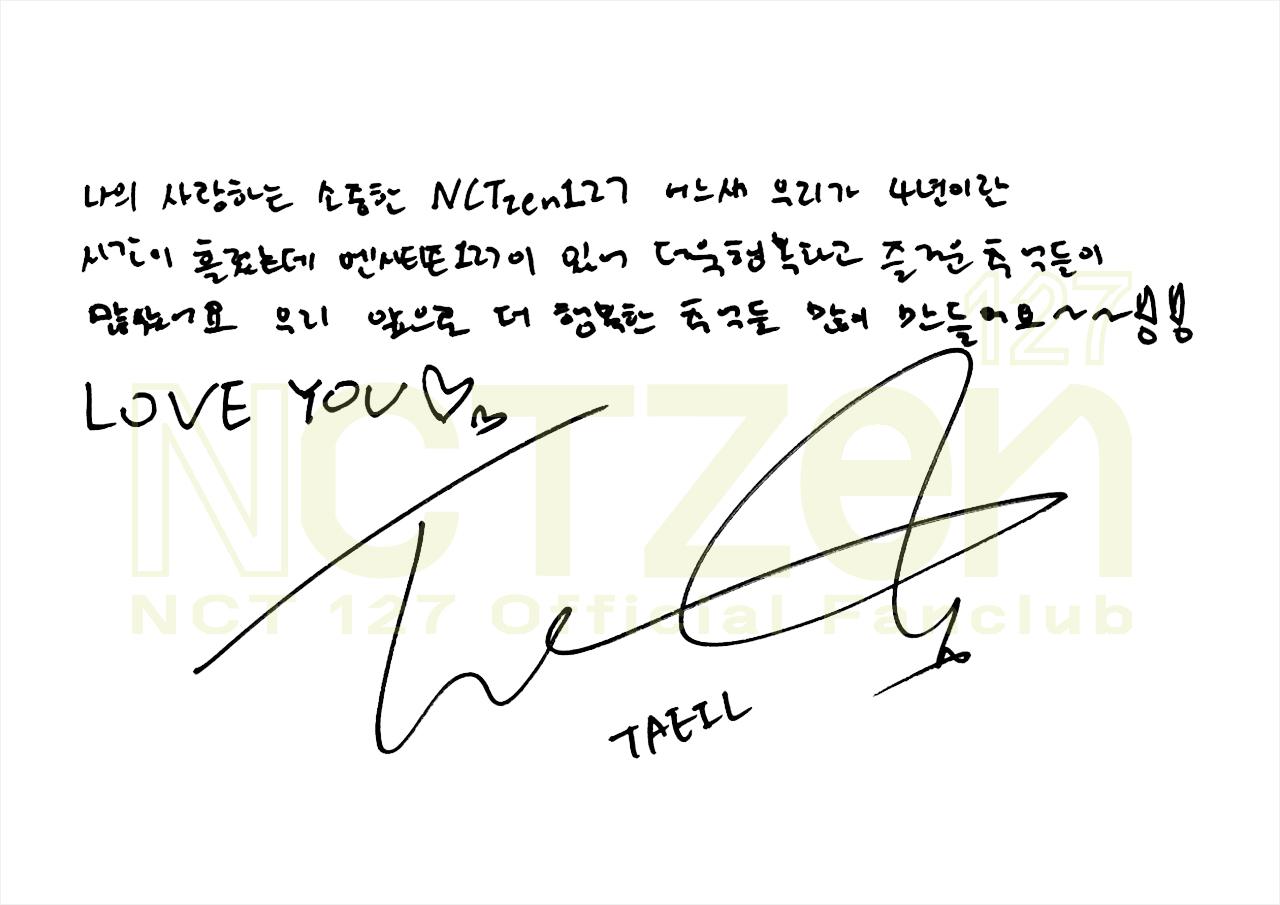 나의 사랑하는 소중한 NCTzen127 어느새 우리가 4년이란
시간이 흘렀는데 엔시티즌127이 있어 더욱행복하고 즐거운 추억들이
많았어요 우리 앞으로 더 행복한 추억들 많이 만들어요~~뿅뿅
LOVE YOU♡
127
NCTzen
NCT 127 Official Fanclub
TAEIL